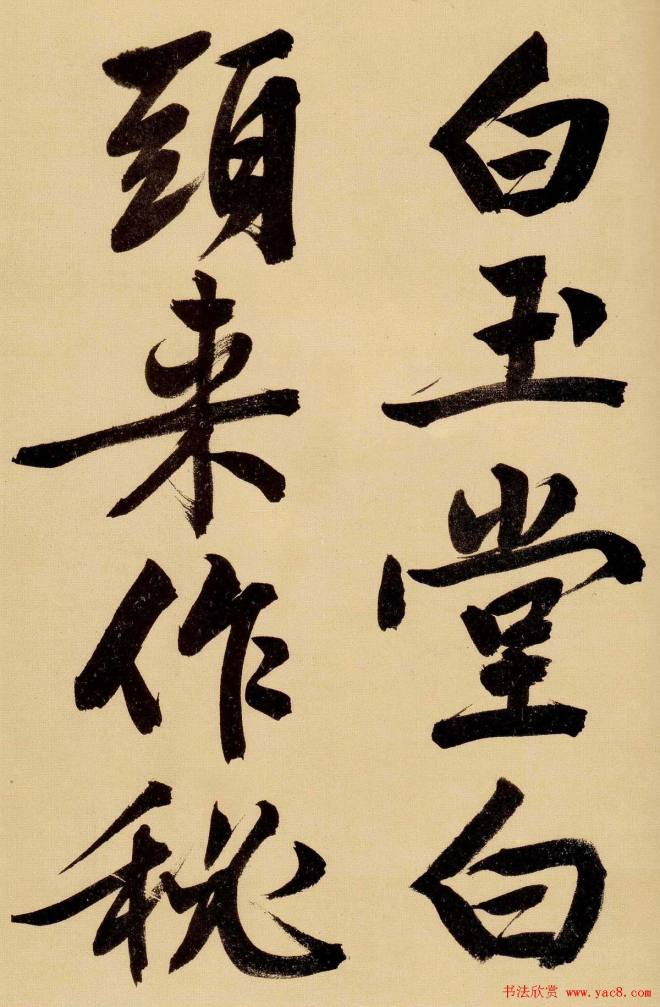 白玉堂白
頭来作秘
书法欣赏 www.yac8.com